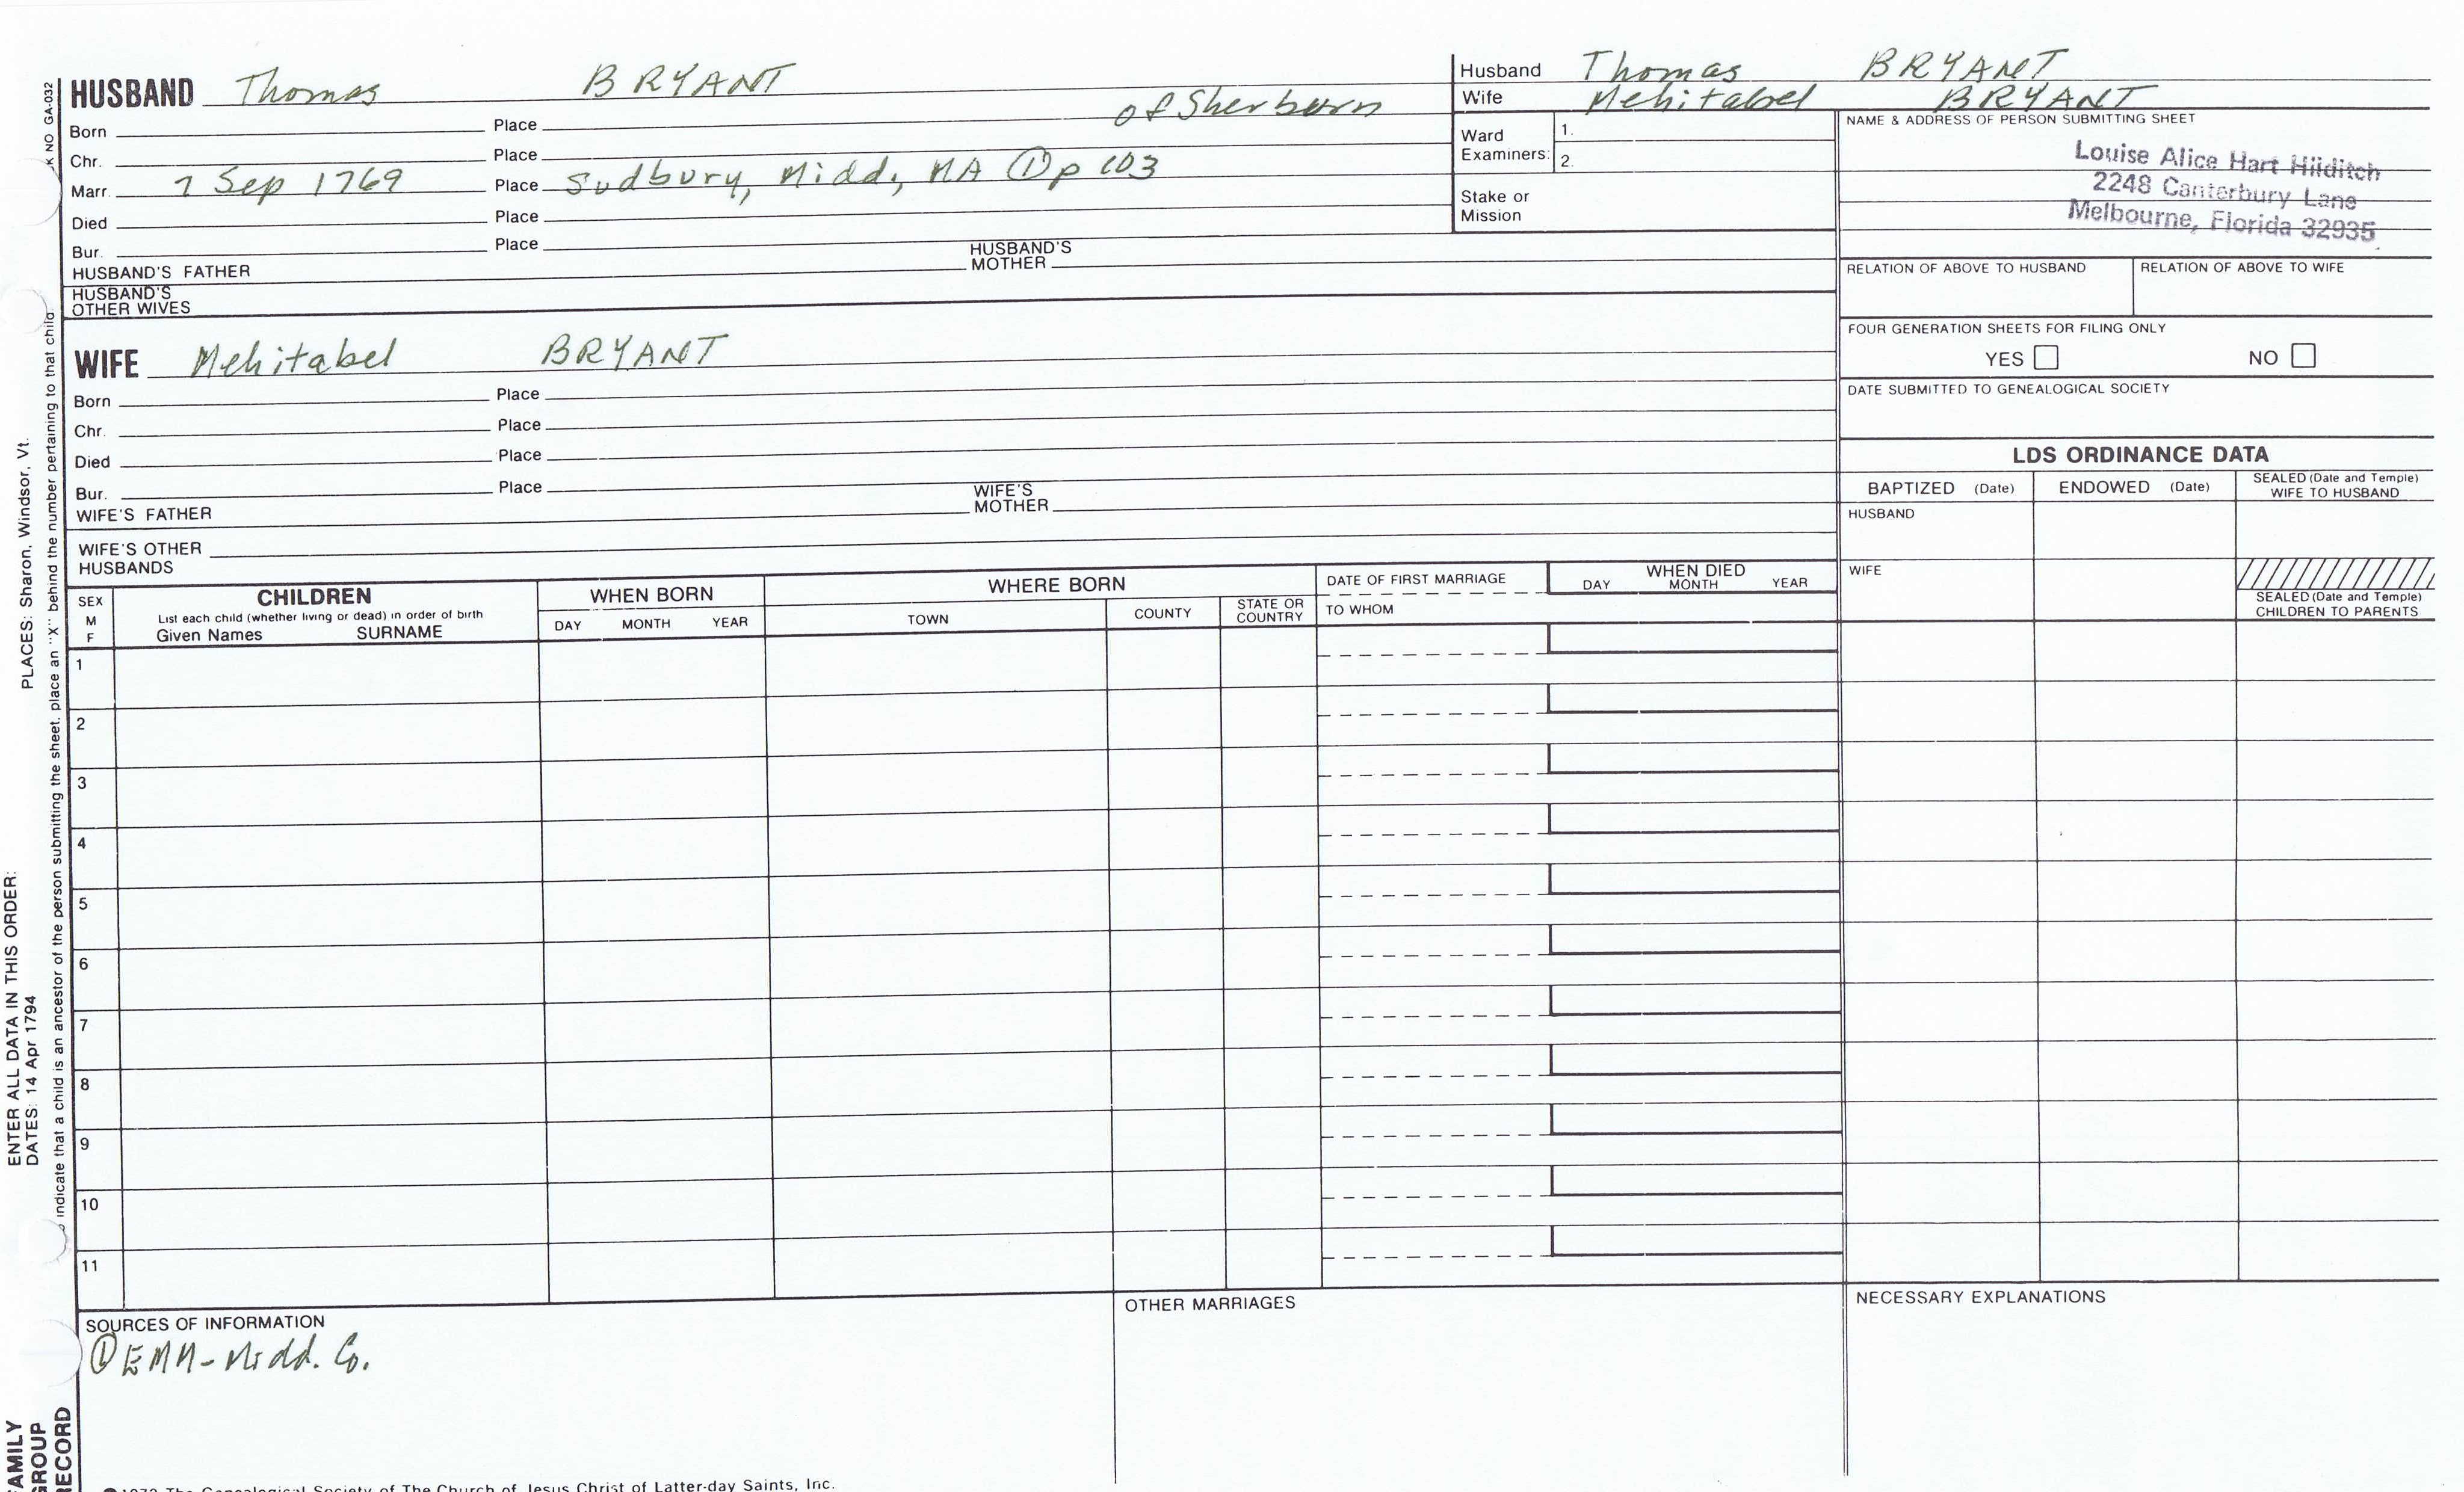 HUSBAND Thomas BRYANT
Born Place of Sherborn
Chr. Place
Marr. 7 Sep 1769 Place Sudbury, Midd, MA ① p 103
Died Place
Bur. Place
HUSBAND'S FATHER HUSBAND'S MOTHER
HUSBAND'S OTHER WIVES
Husband Thomas BRYANT
Wife Mehitabel BRYANT
Ward Examiners: 1.
2.
Stake or Mission
NAME & ADDRESS OF PERSON SUBMITTING SHEET
Louise Alice Hart Hilditch
2248 Canterbury Lane
Melbourne, Florida 32935
RELATION OF ABOVE TO HUSBAND RELATION OF ABOVE TO WIFE
FOUR GENERATION SHEETS FOR FILING ONLY
YES NO
DATE SUBMITTED TO GENEALOGICAL SOCIETY
WIFE Mehitabel BRYANT
Born Place
Chr. Place
Died Place
Bur. Place
WIFE'S FATHER WIFE'S MOTHER
WIFE'S OTHER HUSBANDS
LDS ORDINANCE DATA
BAPTIZED (Date) ENDOWED (Date) SEALED (Date and Temple) WIFE TO HUSBAND
HUSBAND
WIFE
SEALED (Date and Temple) CHILDREN TO PARENTS
SEX M F
CHILDREN
List each child (whether living or dead) in order of birth
Given Names SURNAME
WHEN BORN
DAY MONTH YEAR
WHERE BORN
TOWN COUNTY STATE OR COUNTRY
DATE OF FIRST MARRIAGE
TO WHOM
WHEN DIED
DAY MONTH YEAR
1
2
3
4
5
6
7
8
9
10
11
SOURCES OF INFORMATION
① EMM - Midd. Co.
OTHER MARRIAGES
NECESSARY EXPLANATIONS
The Genealogical Society of The Church of Jesus Christ of Latter-day Saints, Inc.
K NO GA-032
indicate that a child is an ancestor of the person submitting the sheet, place an "X" behind the number pertaining to that child
ENTER ALL DATA IN THIS ORDER:
DATES: 14 Apr 1794 PLACES: Sharon, Windsor, Vt.
AMILY
GROUP
RECORD